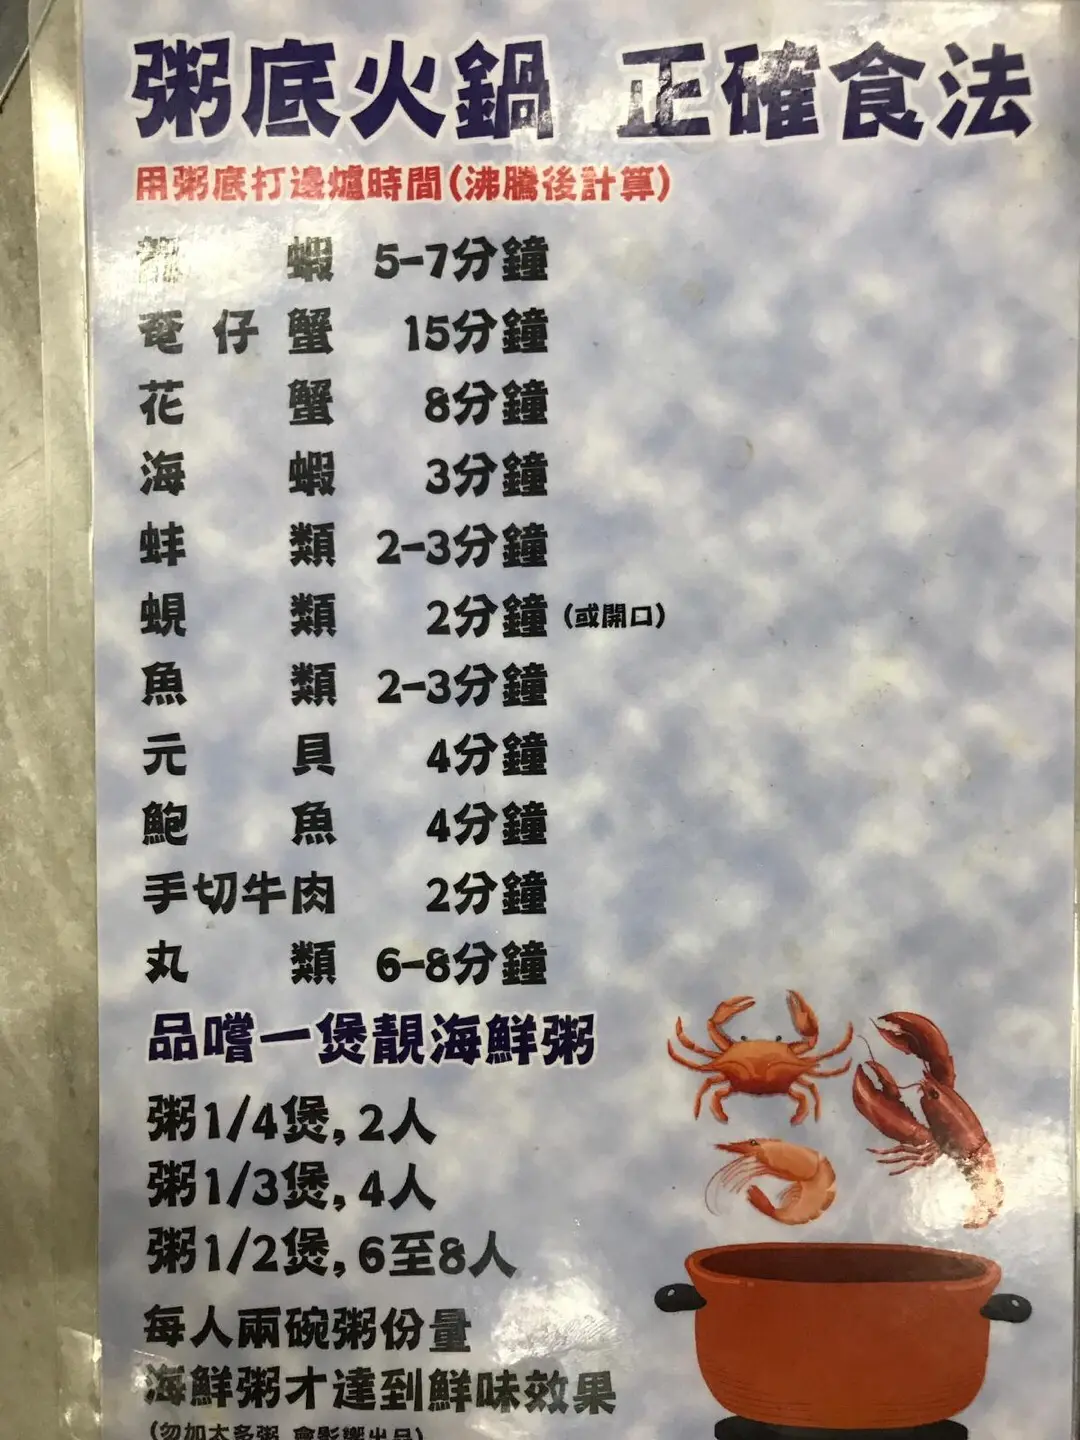 粥底火鍋 正確食法
用粥底打邊爐時間(沸騰後計算)
龍蝦 5-7分鐘
奄仔蟹 15分鐘
花蟹 8分鐘
海蝦 3分鐘
蚌類 2-3分鐘
蜆類 2分鐘(或開口)
魚類 2-3分鐘
元貝 4分鐘
鮑魚 4分鐘
手切牛肉 2分鐘
丸類 6-8分鐘
品嚐一煲靚海鮮粥
粥1/4煲, 2人
粥1/3煲, 4人
粥1/2煲, 6至8人
每人兩碗粥份量
海鮮粥才達到鮮味效果
(勿加太多粥 會影響出品)